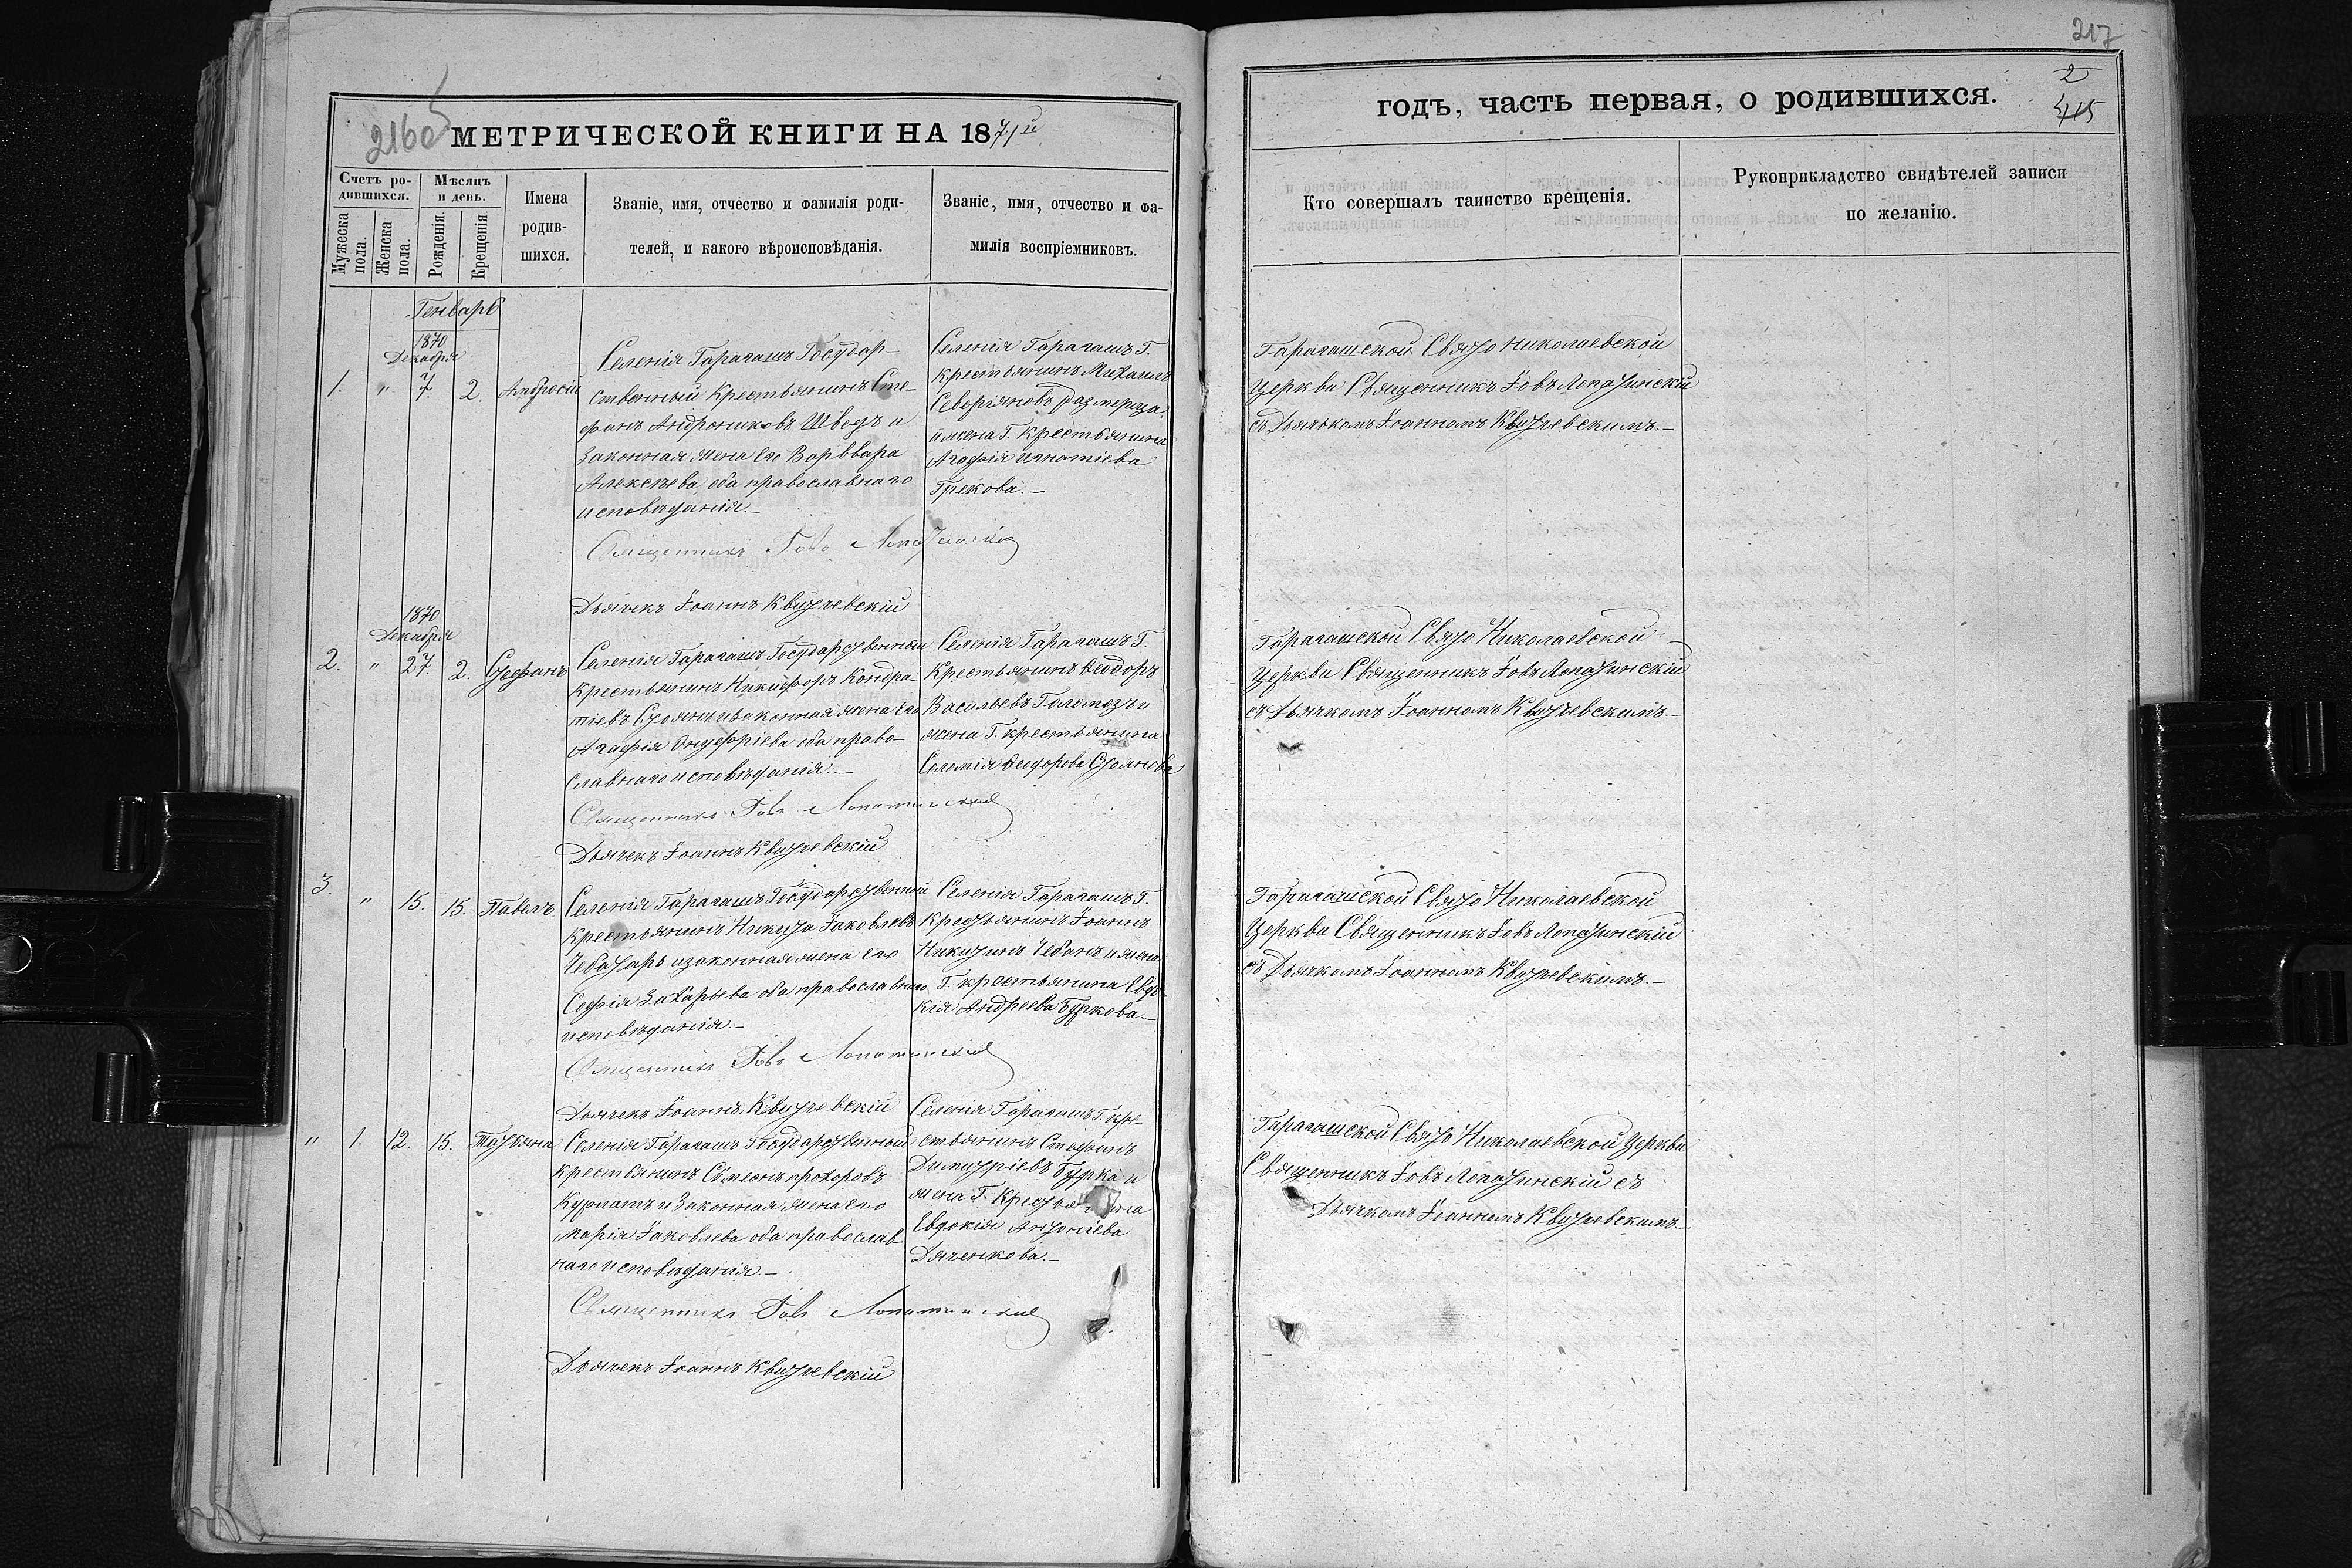 МЕТРИЧЕСКОЙ КНИГИ НА 1871й
Счетъ ро-
дившихся.
Мѣсяцъ
и день.
Мужеска
пола.
Женска
пола.
Рожденія.
Крещенія.
Имена
родив-
шихся.
Званіе, имя, отчество и фамилія роди-
телей, и какого вѣроисповѣданія.
Званіе, имя, отчество и фа-
милія воспріемниковъ.
Генварь
1870
Декабря
1. " 7. 2.
Селенія Гарагашъ Государ-
ственный Крестьянинъ Сте-
фанъ Андрониковъ Шведъ и
законная жена его Варвара
Алексѣева, оба православнаго
исповѣданія.–
Селенія Гарагашъ Г.
Крестьянинъ Михаилъ
Северіяновъ
и жена Г. Крестьянина
Агафія Игнатіева
Грекова.–
Священникъ Іовъ Лопатинскій
Дьячекъ Іоаннъ Квитчевскій
1870
Декабря
2. " 27. 2. Стефанъ
Селенія Гарагашъ Государственный
Крестьянинъ Никифоръ Кондра-
тіевъ Стоянъ и законная жена его
Агафія Онуфріева оба право-
славнаго исповѣданія.–
Селенія Гарагашъ Г.
Крестьянинъ Ѳеодоръ
Васильевъ Голомозъ и
жена Г. крестьянина
Соломія Ѳеодорова Стоянова
Священникъ Іовъ Лопатинскій
Дьячекъ Іоаннъ Квитчевскій
3. " 15. 15. Павелъ
Селенія Гарагашъ Государственный
Крестьянинъ Никита Іаковлевъ
Чеботарь и законная жена его
Софія Захарьева оба православнаго
исповѣданія.–
Селенія Гарагашъ Г.
Крестьянинъ Іоаннъ
Никитинъ Чебанъ и жена
Г. крестьянина Евдо-
кія Андреева Буркова.–
Священникъ Іовъ Лопатинскій
Дьячекъ Іоаннъ Квитчевскій
" 1. 12. 15. Татіяна
Селенія Гарагашъ Государственный
крестьянинъ Сѵмеонъ Прохоровъ
и законная жена его
Марія Іаковлева оба православ-
наго исповѣданія.–
Селенія Гарагашъ Г. кре-
стьянинъ Стефанъ
Димитріевъ Бурка и
жена Г. Крестьянина
Евдокія Антоніева
Дяченкова.–
Священникъ Іовъ Лопатинскій
Дьячекъ Іоаннъ Квитчевскій
217
2
годъ, часть первая, о родившихся.
Кто совершалъ таинство крещенія.
Рукоприкладство свидѣтелей записи
по желанію.
Гарагашской Свято Николаевской
Церкви Священникъ Іовъ Лопатинскій
съ Дьячкомъ Іоанномъ Квитчевскимъ.–
Гарагашской Свято Николаевской
Церкви Священникъ Іовъ Лопатинскій
съ Дьячкомъ Іоанномъ Квитчевскимъ.–
Гарагашской Свято Николаевской
Церкви Священникъ Іовъ Лопатинскій
съ Дьячкомъ Іоанномъ Квитчевскимъ.–
Гарагашской Свято Николаевской Церкви
Священникъ Іовъ Лопатинскій съ
Дьячкомъ Іоанномъ Квитчевскимъ.–